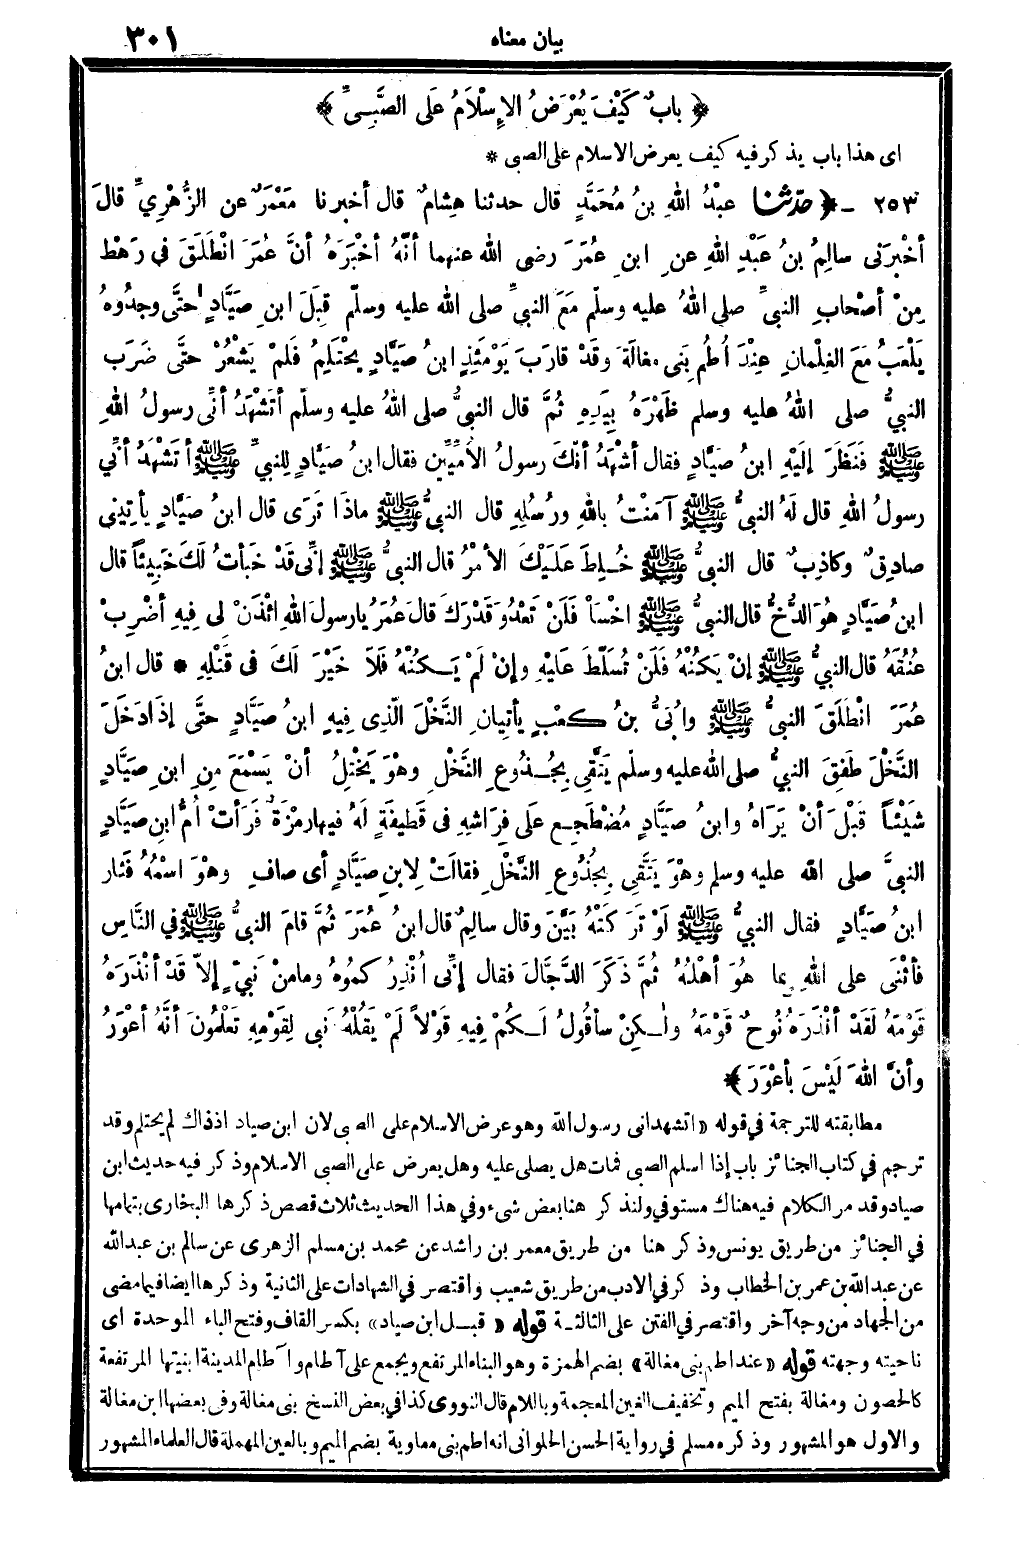 بيان معناه ٣٠١
﴿ بابٌ كَيْفَ يُعْرَضُ الإِسْلَامُ عَلَى الصَّبِيِّ ﴾
اى هذا باب يذكر فيه كيف يعرض الاسلام على الصبى *
٢٥٣ - ﴿ حدّثنا عبْدُ اللهِ بنُ مُحَمَّدٍ قال حدثنا هِشامٌ قال أخبرنا مَعْمَرٌ عنِ الزُّهْرِيِّ قالَ
أخْبرَنى سالِمُ بنُ عَبْدِ اللهِ عنِ ابنِ عُمَرَ رضى الله عنهما أنَّهُ أخْبَرَهُ أنَّ عُمَرَ انْطَلَقَ فى رَهْطٍ
مِنْ أصْحابِ النبىِّ صلى اللهُ عليه وسلّم مَعَ النبىِّ صلى الله عليه وسلّم قِبَلَ ابنِ صَيَّادٍ حتَّى وجدُوهُ
يَلْعَبُ مَعَ الغِلْمانِ عِنْدَ أُطُمِ بَنِى مغالَةَ وقَدْ قارَبَ يَوْمَئِذٍ ابنُ صَيَّادٍ يَحْتَلِمُ فَلَمْ يَشْعُرْ حتَّى ضَرَبَ
النبىُّ صلى اللهُ عليه وسلم ظَهْرَهُ بِيَدِهِ ثُمَّ قال النبىُّ صلى اللهُ عليه وسلّم أتَشْهَدُ أنِّى رسولُ اللهِ
ﷺ فَنَظَرَ إلَيْهِ ابنُ صَيَّادٍ فقال أشْهَدُ أنَّكَ رسولُ الأُمِيِّينَ فقال ابنُ صَيَّادٍ لِلنبىِّ ﷺ أتَشْهَدُ أنِّي
رسولُ اللهِ قال لَهُ النبىُّ ﷺ آمَنْتُ باللهِ ورُسُلِهِ قال النبىُّ ﷺ ماذَا تَرَى قال ابنُ صَيَّادٍ يأتِينِي
صادِقٌ وكاذِبٌ قال النبىُّ ﷺ خُلِطَ عَلَيْكَ الأمْرُ قال النبىُّ ﷺ إنِّى قَدْ خَبَأتُ لَكَ خَبِيئاً قال
ابنُ صَيَّادٍ هُوَ الدُّخُّ قال النبىُّ ﷺ اخْسَأْ فَلَنْ تَعْدُوَ قَدْرَكَ قالَ عُمَرُ يا رسولَ اللهِ ائْذَنْ لى فِيهِ أضْرِبْ
عُنُقَهُ قال النبىُّ ﷺ إنْ يَكُنْهُ فَلَنْ تُسَلَّطَ عَلَيْهِ وإنْ لَمْ يَكُنْهُ فَلَا خَيْرَ لَكَ فى قَتْلِهِ * قال ابنُ
عُمَرَ انْطَلَقَ النبىُّ ﷺ وأُبَىُّ بنُ كعْبٍ يأتِيانِ النَّخْلَ الَّذِى فِيهِ ابنُ صَيَّادٍ حتَّى إذَا دَخَلَ
النَّخْلَ طَفِقَ النبىُّ صلى الله عليه وسلّم يَتَّقِى بِجُذُوعِ النَّخْلِ وهْوَ يَخْتِلُ أنْ يَسْمَعَ مِنِ ابنِ صَيَّادٍ
شَيْئاً قَبْلَ أنْ يَرَاهُ وابنُ صَيَّادٍ مُضْطَجِعٌ عَلَى فِرَاشِهِ فى قَطِيفَةٍ لَهُ فِيها رمْزَةٌ فَرَأتْ أُمُّ ابنِ صَيَّادٍ
النبىَّ صلى الله عليه وسلم وهْوَ يَتَّقِى بِجُذُوعِ النَّخْلِ فقالَتْ لِابنِ صَيَّادٍ أى صافِ وهْوَ اسْمُهُ فَثار
ابنُ صَيَّادٍ فقال النبىُّ ﷺ لَوْ تَرَكَتْهُ بَيَّنَ وقال سالِمٌ قال ابنُ عُمَرَ ثُمَّ قامَ النبىُّ ﷺ في النَّاسِ
فأثْنَى على اللهِ بِما هُوَ أهْلُهُ ثُمَّ ذَكَرَ الدَّجَّالَ فقال إنِّى أُنْذِرُكمُوهُ وما مِنْ نَبىٍّ إلاَّ قَدْ أنْذَرَهُ
قَوْمَهُ لَقَدْ أنْذَرَهُ نُوحٌ قَوْمَهُ ولٰكِنْ سأقُولُ لَكُمْ فِيهِ قَوْلاً لَمْ يَقُلْهُ نَبى لِقَوْمِهِ تَعْلَمُونَ أنَّهُ أعْوَرُ
وأنَّ اللهَ لَيْسَ بأعْوَرَ ﴾
مطابقته للترجمة في قوله «اتشهد انى رسول الله وهو عرض الاسلام على الصبى لان ابن صياد اذ ذاك لم يحتلم وقد
ترجم في كتاب الجنائز باب إذا اسلم الصبى فمات هل يصلى عليه وهل يعرض على الصبى الاسلام وذكر فيه حديث ابن
صياد وقد مر الكلام فيه هناك مستوفي ولنذكر هنا بعض شىء وفي هذا الحديث ثلاث قصص ذكرها البخارى بتمامها
في الجنائز من طريق يونس وذكر هنا من طريق معمر بن راشد عن محمد بن مسلم الزهرى عن سالم بن عبدالله
عن عبدالله بن عمر بن الخطاب وذكر في الادب من طريق شعيب واقتصر في الشهادات على الثانية وذكرها ايضا فيما مضى
من الجهاد من وجه آخر واقتصر في الفتن على الثالثة قوله «قبل ابن صياد» بكسر القاف وفتح الباء الموحدة اى
ناحيته وجهته قوله «عند اطم بنى مغالة» بضم الهمزة وهو البناء المرتفع ويجمع على آطام وآطام المدينة ابنيتها المرتفعة
كالحصون ومغالة بفتح الميم وتخفيف الغين المعجمة وباللام قال النووى كذا في بعض النسخ بنى مغالة وفى بعضها ابن مغالة
والاول هو المشهور وذكره مسلم في رواية الحسن الحلوانى انه اطم بنى معاوية بضم الميم وبالعين المهملة قال العلماء المشهور